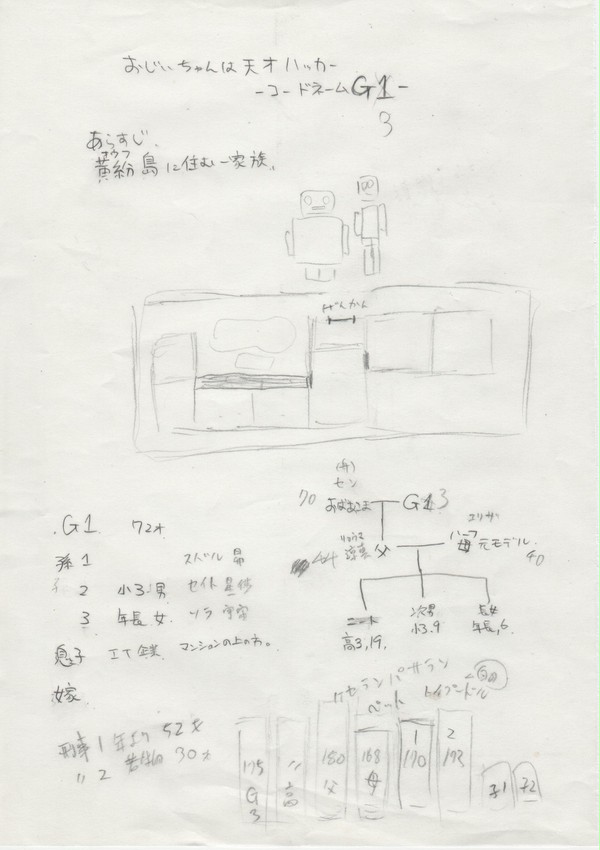 おじいちゃんは天才ハッカー
-コードネームG1-
3
あらすじ、
コウフ
黄紛島に住む一家族、
げんかん
(舟)
セン
70 おばあこま G13
エリサ
44 涼真 父 ハーフ 母 元モデル
40
ニート 次男 長女
高3,19. 小3.9 年長,6
.G1. 72才
孫1 スバル 昴
2 小3.男 セイト
3 年長 女 ソラ 宇宙
息子 IT企業 マンションの上の方。
嫁
ケセランパサラン
ペット トイプードル
刑事1 年より 52才
〃2 30才
175 〃 180 168 1 2
G 高 父 母 170 173
3 子1 子2